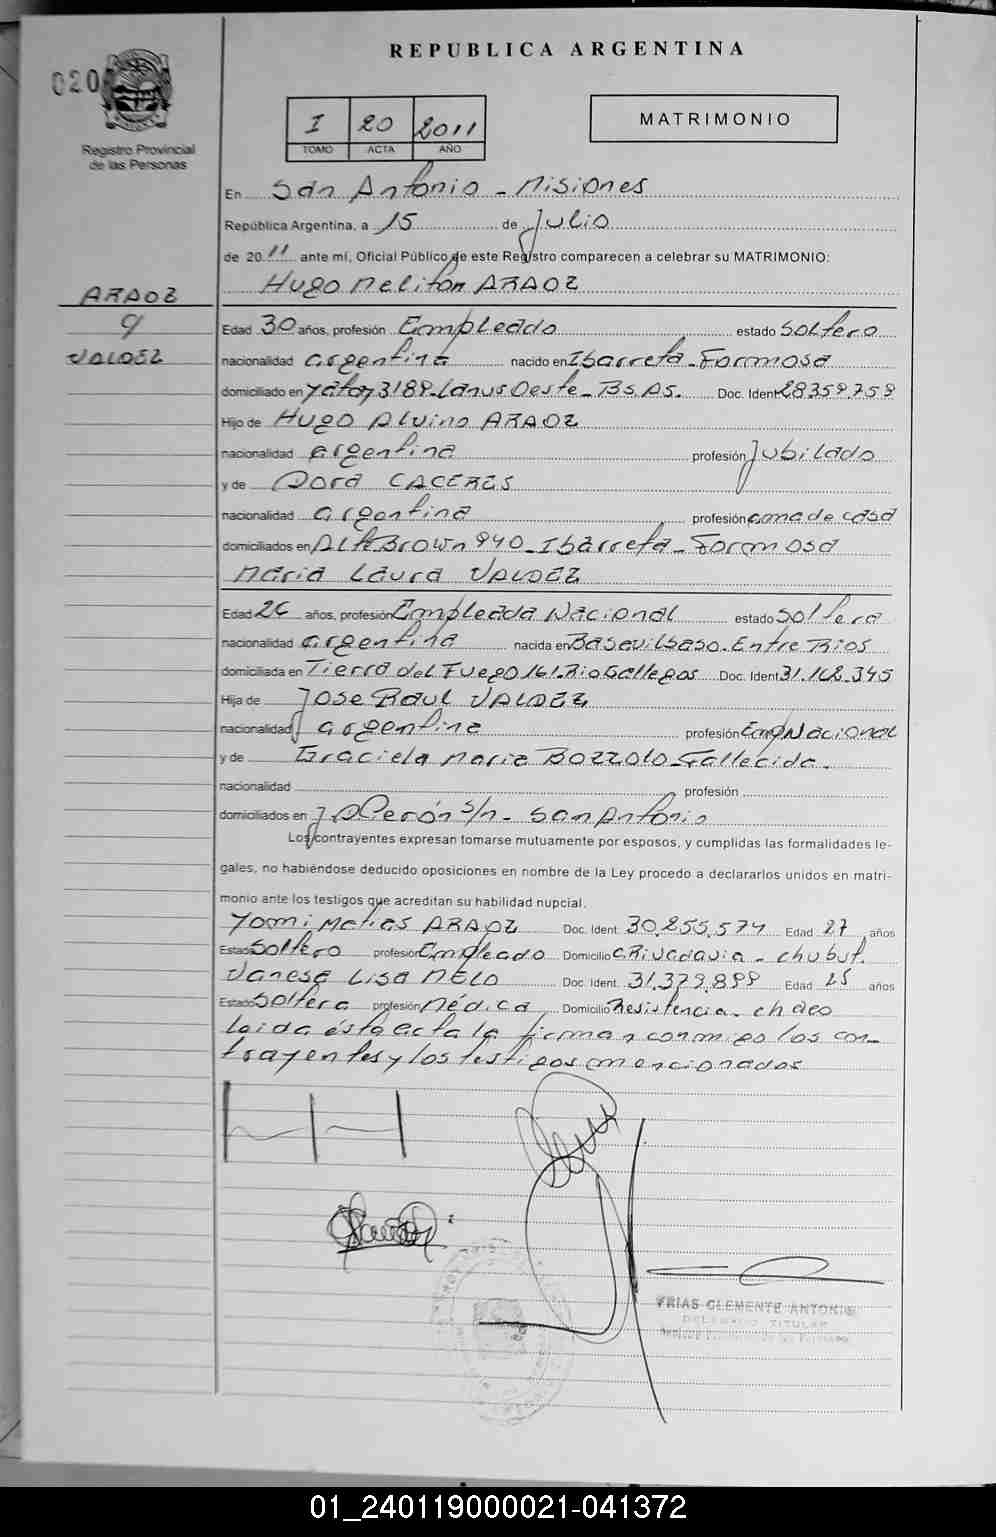 REPUBLICA ARGENTINA
020
Registro Provincial
de las Personas
I 20 2011
TOMO ACTA AÑO
MATRIMONIO
En San Antonio - Misiones
República Argentina, a 15 de Julio
de 2011 ante mí, Oficial Público de este Registro comparecen a celebrar su MATRIMONIO:
Hugo Meliton ARAOZ
ARAOZ
c/
VALDEZ
Edad 30 años, profesión Empleado estado Soltero
nacionalidad argentina nacido en Ibarreta - Formosa
domiciliado en Yatay 3189 - Lanus Oeste - Bs. As. Doc. Ident 28.359.759
Hijo de Hugo Alvino ARAOZ
nacionalidad argentina profesión Jubilado
y de Dora CACERES
nacionalidad argentina profesión ama de casa
domiciliados en Alte. Brown 940 - Ibarreta - Formosa
Maria Laura VALDEZ
Edad 26 años, profesión Empleada Nacional estado Soltera
nacionalidad argentina nacida en Basavilbaso - Entre Rios
domiciliada en Tierra del Fuego 161 - Rio Gallegos Doc. Ident 31.162.345
Hija de Jose Raul VALDEZ
nacionalidad argentina profesión Emp Nacional
y de Graciela Maria BOZZOLO - Fallecida.
nacionalidad profesión
domiciliados en J. D. Perón s/n - San Antonio
Los contrayentes expresan tomarse mutuamente por esposos, y cumplidas las formalidades le-
gales, no habiéndose deducido oposiciones en nombre de la Ley procedo a declararlos unidos en matri-
monio ante los testigos que acreditan su habilidad nupcial.
Yomi Matias ARAOZ Doc. Ident. 30.255.574 Edad 27 años
Estado Soltero profesión Empleado Domicilio C. Rivadavia - Chubut.
Vanesa Lisa MELO Doc. Ident. 31.379.899 Edad 25 años
Estado Soltera profesión Médica Domicilio Resistencia - Chaco
Leida ésta acta la firman conmigo los con-
trayentes y los testigos mencionados
FRIAS CLEMENTE ANTONIO
DELEGADO TITULAR
01_240119000021-041372